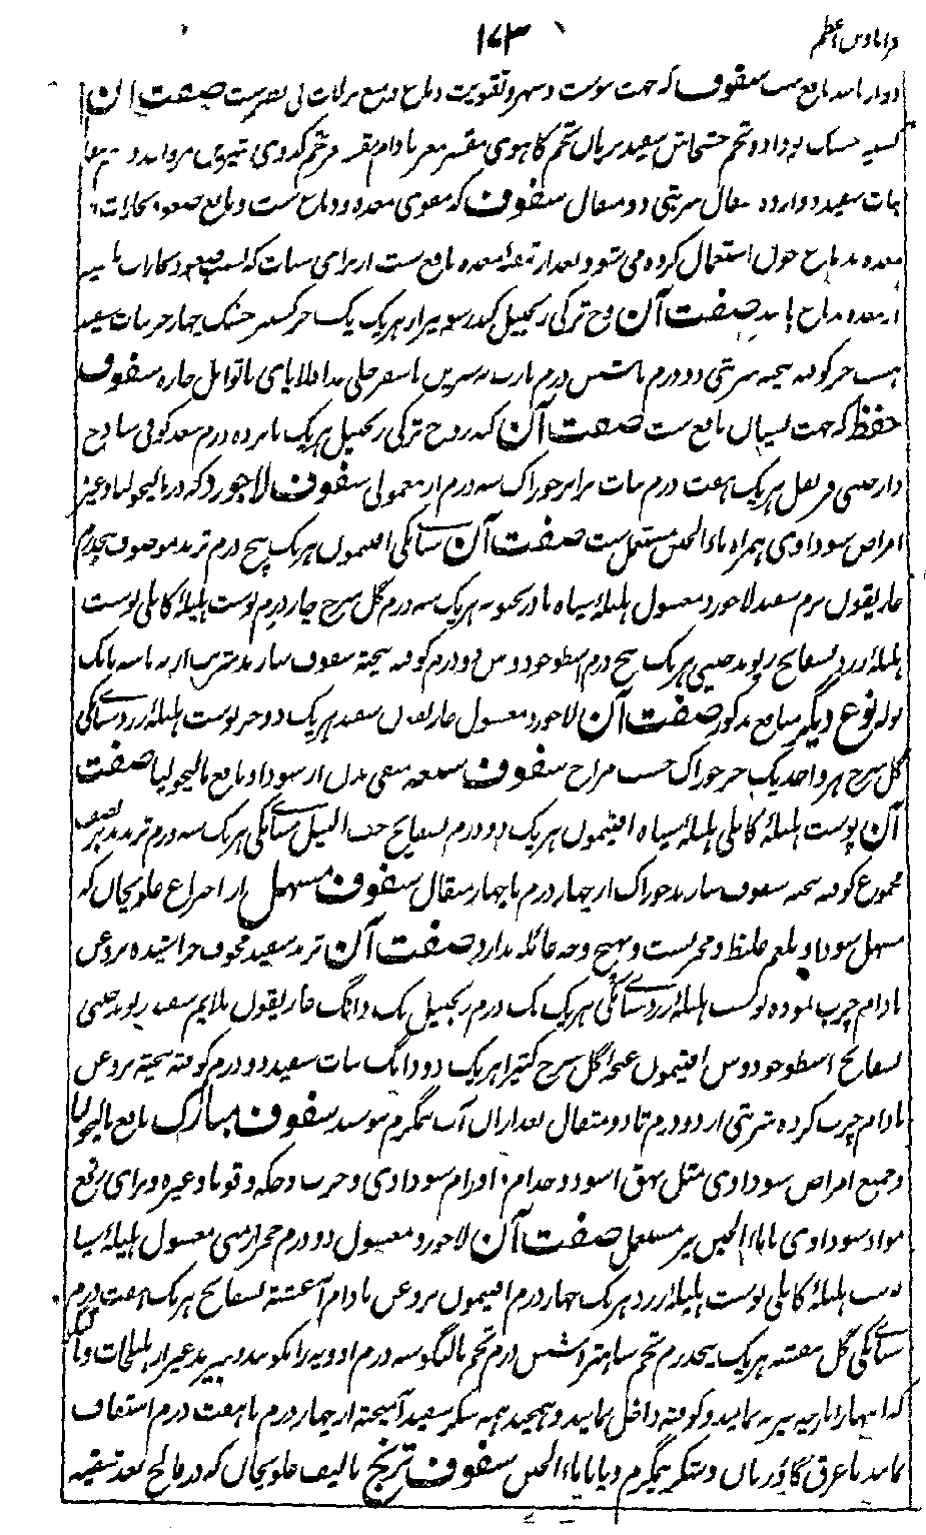 ۱۷۳
سفوف که جهت صفت آن
تخم خشخاش سفید بریان تخم کاهوی مقشر مغز بادام مقشر مغز تخم کدوی شیرین
نبات سفید دوازده مثقال شربتی دو مثقال سفوف که مقوی معده و دماغ ست و مانع صعود بخارات
معده بدماغ چون استعمال کرده می‌شود بعد از تنقیه معده نافع ست از برای سبات که بسبب صعود بخارات باشد
از معده بدماغ صفت آن وج ترکی زنجبیل کندر هر یک یک جزو کشنیز خشک چهار جزو نبات سفید
هشت جزو کوفته بیخته شربتی دو درم تا شش درم سفوف
حفظ که جهت نسیان نافع ست صفت آن کندر وج ترکی زنجبیل هر یک پانزده درم سعد کوفی ساذج
دارچینی قرنفل هر یک هفت درم نبات برابر خوراک سه درم از معمولی سفوف لاجورد که در مالیخولیا و غیره
امراض سوداوی همراه ماء الجبن مستعمل ست صفت آن سنا مکی افتیمون هر یک پنج درم تربد موصوف پنجدرم
غاریقون نرم سفید لاجورد مغسول هلیله سیاه بادرنجبویه هر یک سه درم گل سرخ چار درم پوست هلیله کابلی پوست
هلیله زرد بسفایج ریوند چینی هر یک پنج درم اسطوخودوس دو درم کوفته بیخته سفوف سازند شربت از سه ماشه تا یک
توله نوع دیگر منافع مذکور صفت آن لاجورد مغسول غاریقون سفید هر یک دو جزو پوست هلیله زرد سنا مکی
گل سرخ هر واحد یک جزو خوراک حسب مزاج سفوف منقی بدن از سودا و نافع مالیخولیا صفت
آن پوست هلیله کابلی هلیله سیاه افتیمون هر یک دو درم بسفایج حب النیل سنا مکی هر یک سه درم تربد نصف
مجموع کوفته بیخته سفوف سازند خوراک از چهار درم تا چهار مثقال سفوف مسهل از اختراع علویخان که
مسهل سودا و بلغم غلیظ و مجرب ست و بهیچ وجه غائله ندارد صفت آن تربد سفید مجوف خراشیده بروغن
بادام چرب نموده پوست هلیله زرد سنا مکی هر یک یک درم زنجبیل یک دانگ غاریقون ملایم سفید ریوند چینی
بسفایج اسطوخودوس افتیمون غنچه گل سرخ کتیرا هر یک دو دانگ نبات سفید دو درم کوفته بیخته بروغن
بادام چرب کرده شربتی از دو درم تا دو مثقال بعد ازان آب نیمگرم نوشند سفوف مبارک نافع مالیخولیا
و جمیع امراض سوداوی مثل بهق اسود و جذام و اورام سوداوی و جرب و حکه و قوبا و غیره و برای رفع
مواد سوداوی با ماء الجبن نیز مستعمل صفت آن لاجورد مغسول دو درم حجر ارمنی مغسول هلیله سیاه
پوست هلیله کابلی پوست هلیله زرد هر یک چهار درم افتیمون بروغن بادام آغشته بسفایج هر یک هفت درم
سنا مکی گل بنفشه هر یک پنجدرم تخم شاهتره شش درم تخم بالنگو سه درم ادویه را بکوبند و ببیزند غیر از هلیلجات و بالنگو
که اینها را نرم بسایند و کوفته داخل نمایند و همچند همه شکر سفید آمیخته از چهار درم تا هفت درم استفاف
نمایند با عرق گاوزبان و شکر نیمگرم و یا با ماء الجبن سفوف ترنج تالیف علویخان که در فالج بعد تنقیه